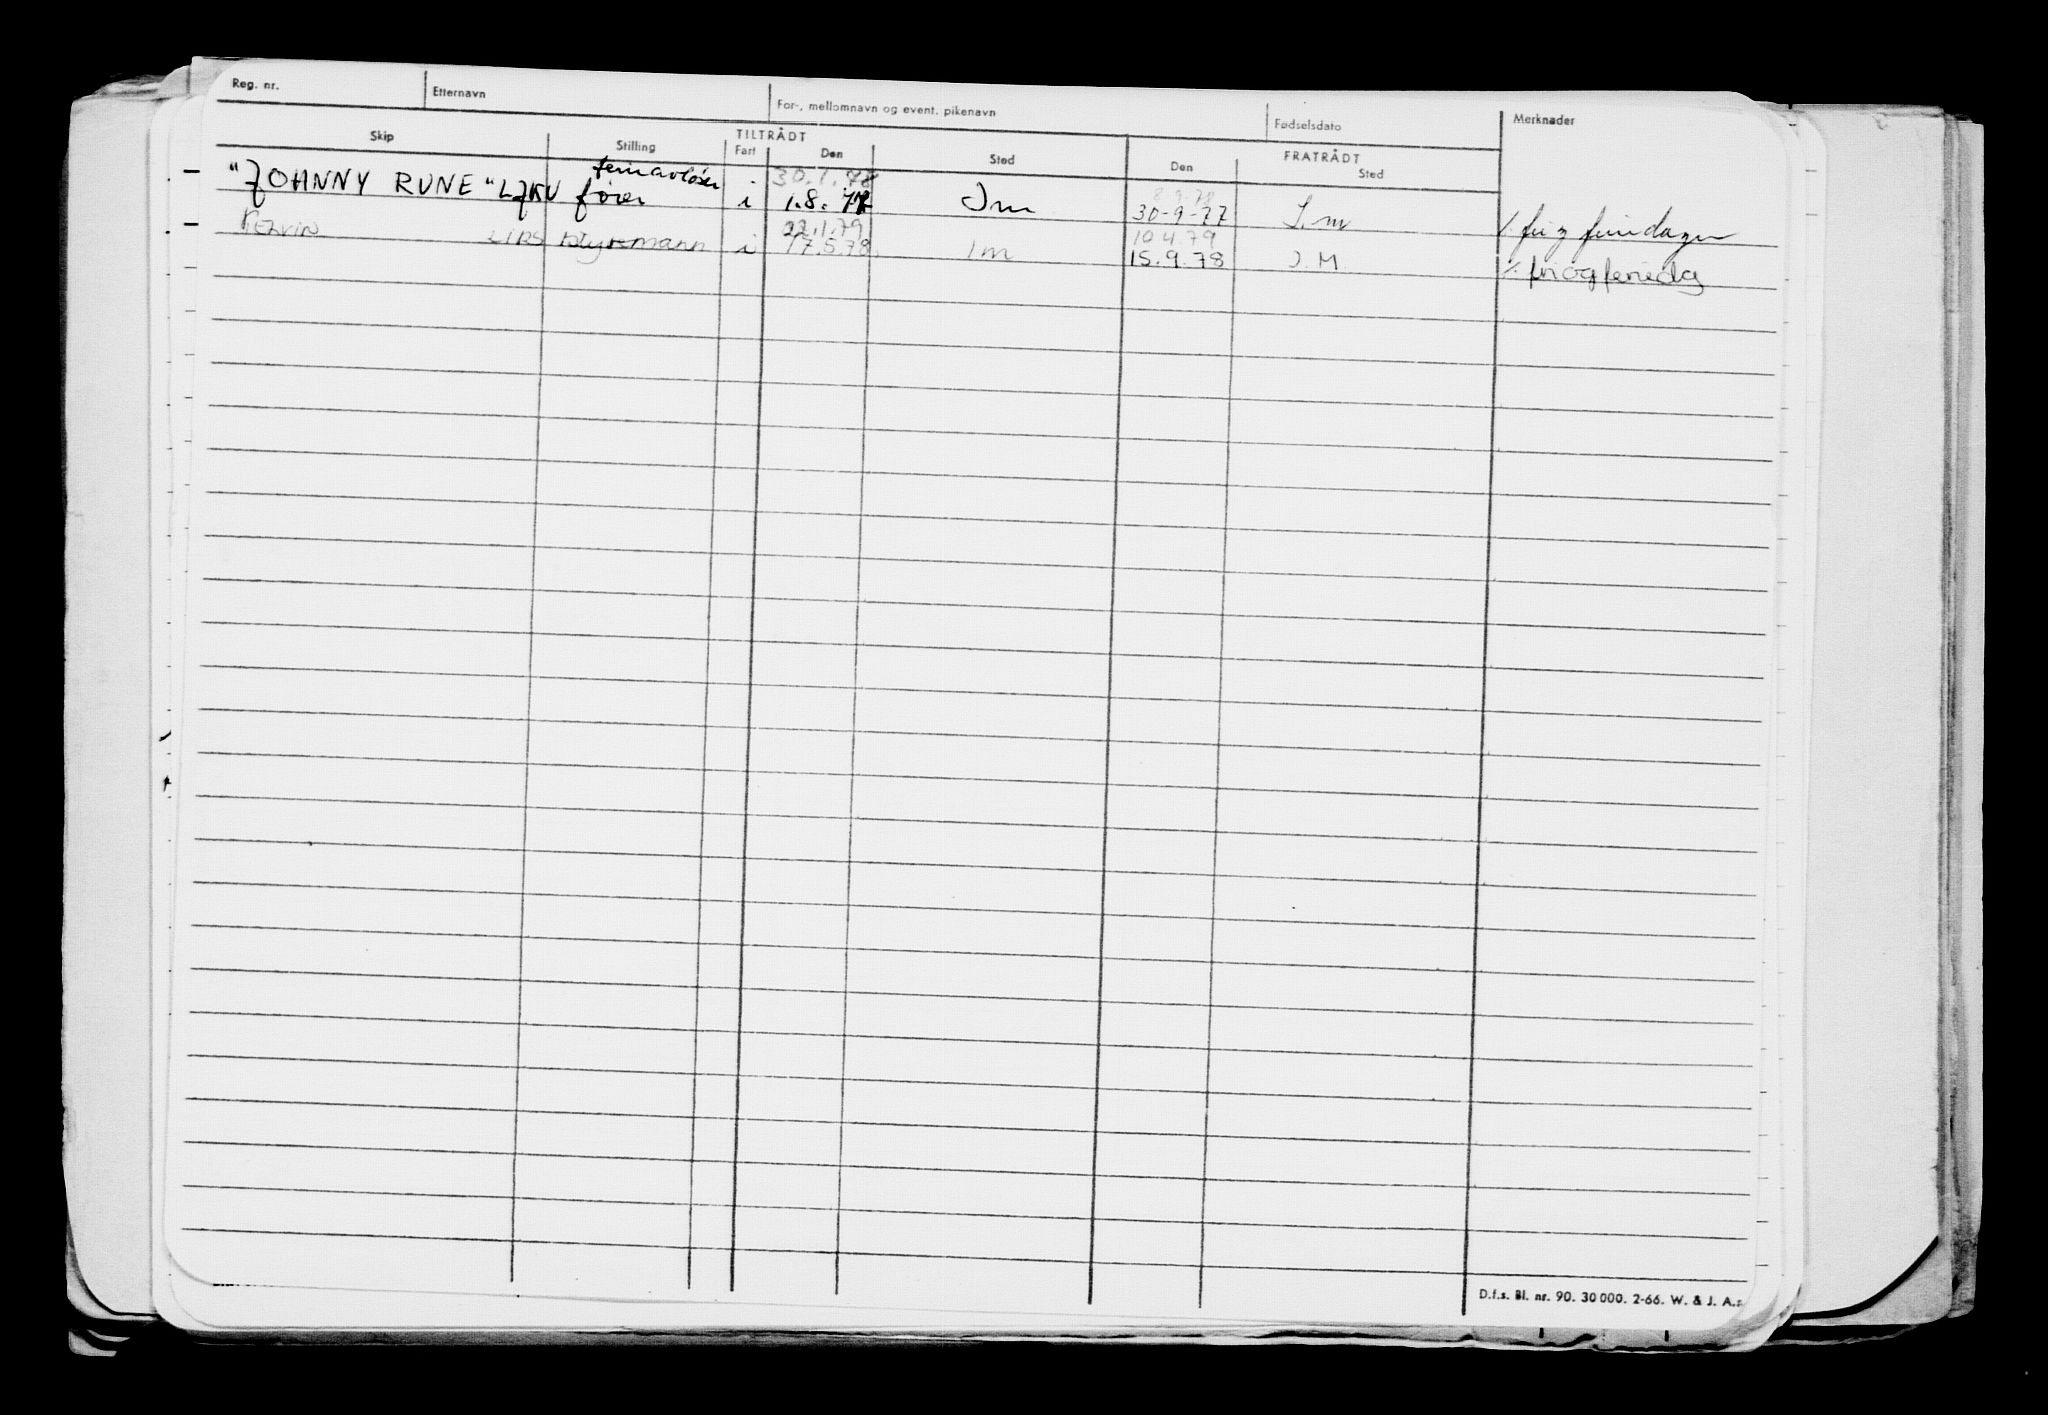 Reg. nr. Etternavn For-, mellomnavn og event. pikenavn Fødselsdato Merknader
TILTRÅDT FRATRÅDT
Skip Stilling Fart Den Sted Den Sted
ferieavløser 30.1.78 8.9.78
"JOHNNY RUNE" LJKU fører i 1.8.77 Im 30-9-77 I.m
22.1.79 10.4.79
styrmann i 17.5.78. Im 15.9.78 I.M. % fri og feriedag
D.f.s. Bl. nr. 90. 30 000. 2-66. W. & J. A.s